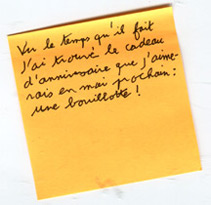 Vu le temps qu'il fait
j'ai trouvé le cadeau
d'anniversaire que j'aime-
rais en mai prochain :
une bouillotte !